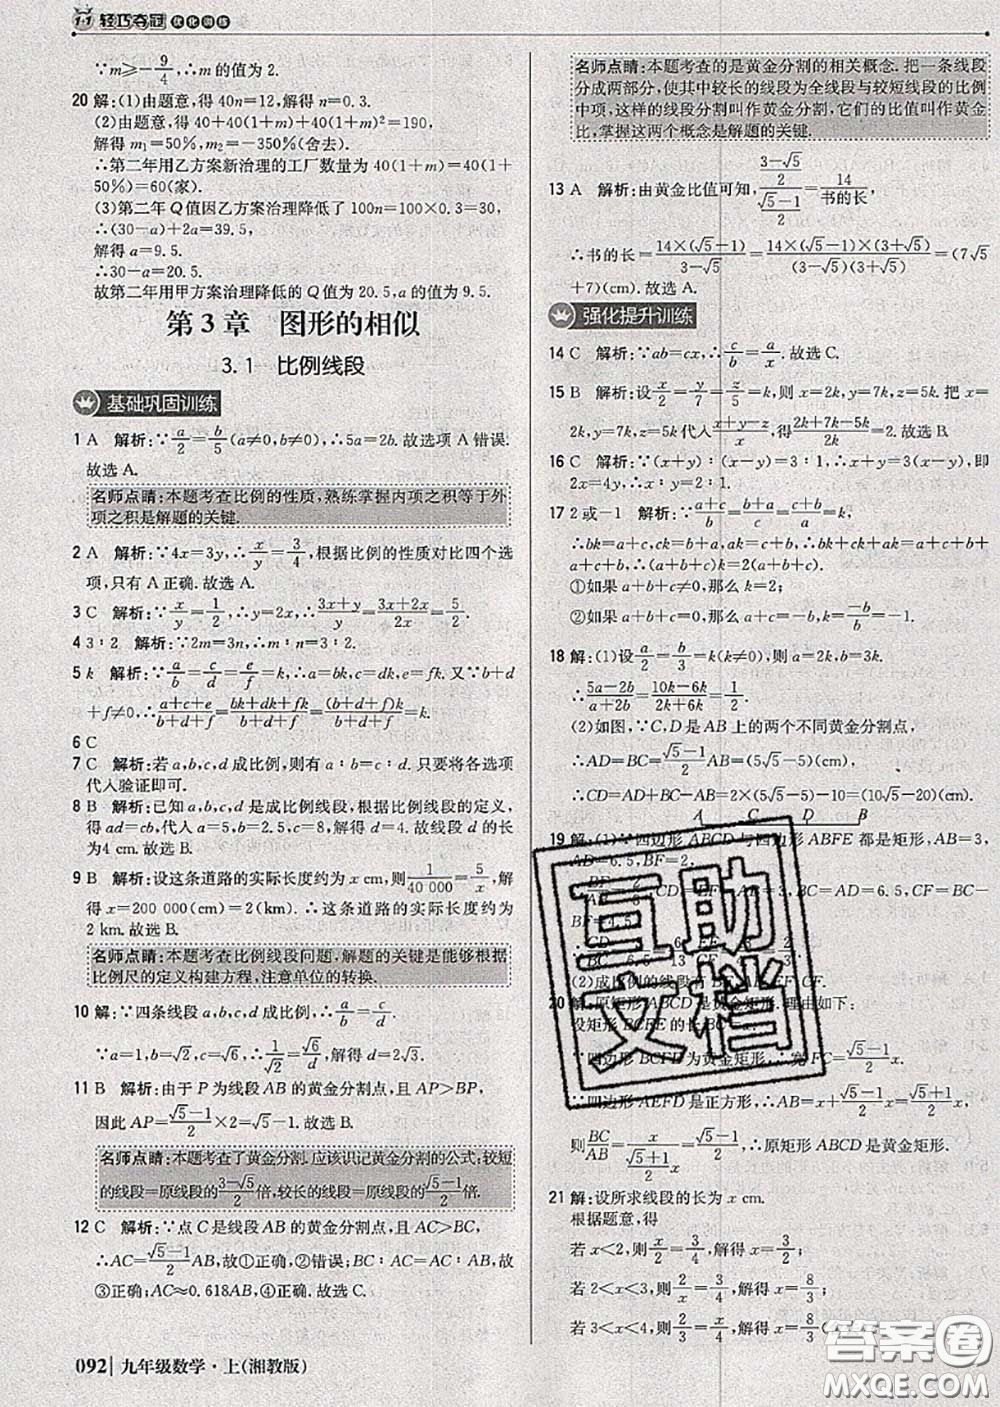 1+1 轻巧夺冠 优化训练
∵m≥-9/4,∴m的值为2.
20 解:(1)由题意,得40n=12,解得n=0.3.
(2)由题意,得40+40(1+m)+40(1+m)²=190,
解得m₁=50%,m₂=-350%(舍去).
∴第二年用乙方案新治理的工厂数量为40(1+m)=40(1+
50%)=60(家).
(3)第二年Q值因乙方案治理降低了100n=100×0.3=30,
∴(30-a)+2a=39.5,
解得a=9.5.
∴30-a=20.5.
故第二年用甲方案治理降低的Q值为20.5,a的值为9.5.
第3章 图形的相似
3.1 比例线段
基础巩固训练
1 A 解析:∵a/2=b/5(a≠0,b≠0),∴5a=2b.故选项A错误.
故选A.
名师点睛:本题考查比例的性质,熟练掌握内项之积等于外
项之积是解题的关键.
2 A 解析:∵4x=3y,∴x/y=3/4,根据比例的性质对比四个选
项,只有A正确.故选A.
3 C 解析:∵x/y=1/2,∴y=2x,∴(3x+y)/y=(3x+2x)/2x=5/2.
4 3∶2 解析:∵2m=3n,∴m∶n=3∶2.
5 k 解析:∵a/b=c/d=e/f=k,∴a=bk,c=dk,e=fk.又∵b+d
+f≠0,∴(a+c+e)/(b+d+f)=(bk+dk+fk)/(b+d+f)=(b+d+f)k/(b+d+f)=k.
6 C
7 C 解析:若a,b,c,d成比例,则有a∶b=c∶d.只要将各选项
代入验证即可.
8 B 解析:已知a,b,c,d是成比例线段,根据比例线段的定义,
得ad=cb,代入a=5,b=2.5,c=8,解得d=4.故线段d的长
为4 cm.故选B.
9 B 解析:设这条道路的实际长度约为x cm,则1/40 000=5/x,解
得x=200 000(cm)=2(km).∴这条道路的实际长度约为
2 km.故选B.
名师点睛:本题考查比例线段问题.解题的关键是能够根据
比例尺的定义构建方程,注意单位的转换.
10 解:∵四条线段a,b,c,d成比例,∴a/b=c/d.
∵a=1,b=√2,c=√6,∴1/√2=√6/d,解得d=2√3.
11 B 解析:由于P为线段AB的黄金分割点,且AP>BP,
因此AP=(√5-1)/2×2=√5-1.故选B.
名师点睛:本题考查了黄金分割.应该识记黄金分割的公式:较短
的线段=原线段的(3-√5)/2倍,较长的线段=原线段的(√5-1)/2倍.
12 C 解析:∵点C是线段AB的黄金分割点,且AC>BC,
∴AC=(√5-1)/2AB,故①正确;②错误;BC∶AC=AC∶AB,
③正确;AC≈0.618AB,④正确.故选C.
092 九年级数学·上(湘教版)
名师点睛:本题考查的是黄金分割的相关概念.把一条线段
分成两部分,使其中较长的线段为全线段与较短线段的比例
中项,这样的线段分割叫作黄金分割,它们的比值叫作黄金
比,掌握这两个概念是解题的关键.
13 A 解析:由黄金比值可知,((3-√5)/2)/((√5-1)/2)=14/书的长,
∴书的长=14×(√5-1)/(3-√5)=14×(√5-1)×(3+√5)/(3-√5)×(3+√5)=(7√5
+7)(cm).故选A.
强化提升训练
14 C 解析:∵ab=cx,∴c/b=a/x.故选C.
15 B 解析:设x/2=y/7=z/5=k,则x=2k,y=7k,z=5k.把x=
2k,y=7k,z=5k代入(x+y-z)/x,得(2k+7k-5k)/2k=2.故选B.
16 C 解析:∵(x+y)∶(x-y)=3∶1,∴x+y=3x-3y,即
2x=4y,∴x∶y=2∶1.故选C.
17 2或-1 解析:∵(a+c)/b=(b+c)/a=(a+b)/c=k,
∴bk=a+c,ct+b=ak,a+b=ck,∴bk+ak+ck=a+b+
a+c+b+c,∴(a+b+c)k=2(a+b+c).
①如果a+b+c≠0,那么k=2;
②如果a+b+c=0,那么a+c=-b,∴k=-b/b=-1.
18 解:(1)设a/2=b/3=k(k≠0),则a=2k,b=3k.
∴(5a-2b)/(a+2b)=(10k-6k)/(2k+6k)=1/2.
(2)如图,∵C,D是AB上的两个不同黄金分割点,
∴AD=BC=(√5-1)/2AB=(5√5-5)(cm),
∴CD=AD+BC-AB=2×(5√5-5)-10=(10√5-20)(cm).
A C D B
19 解:(1)∵四边形ABCD与四边形ABFE都是矩形,AB=3,
AD=6.5,BF=2,
(2)成比例的线段有
20 解:原矩形ABCD是黄金矩形.理由如下:
设矩形BCFE的长BC=x,
∵四边形BCFE为黄金矩形,∴宽FC=(√5-1)/2x.
∵四边形AEFD是正方形,∴AB=x+(√5-1)/2x=(√5+1)/2x,
则BC/AB=x/((√5+1)/2x)=(√5-1)/2.∴原矩形ABCD是黄金矩形.
21 解:设所求线段的长为x cm.
根据题意,得
若x<2,则x/2=2/3,解得x=
若2<x<3,则2/x=x/3,解得x=
若3<x,则2/3=3/x,解得x=
互助
文档
答案圈
MXQE.COM